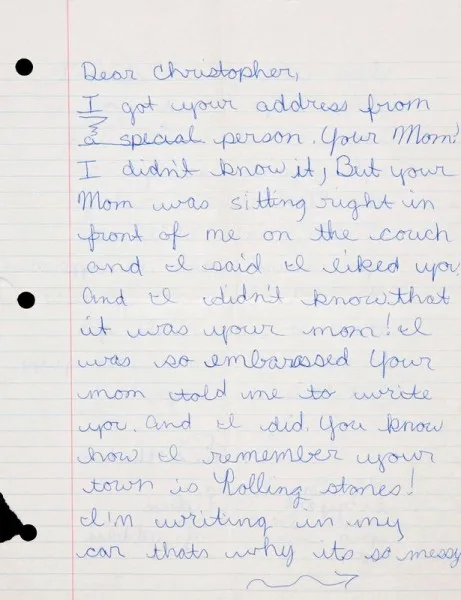 Dear Christopher,
I got your address from
a special person. Your Mom!
I didn't know it, But your
Mom was sitting right in
front of me on the couch
and I said I liked you.
And I didn't know that
it was your mom! I
was so embarassed Your
mom told me to write
you. And I did. You know
how I remember your
town is Rolling stones!
I'm writing in my
car thats why its so messy